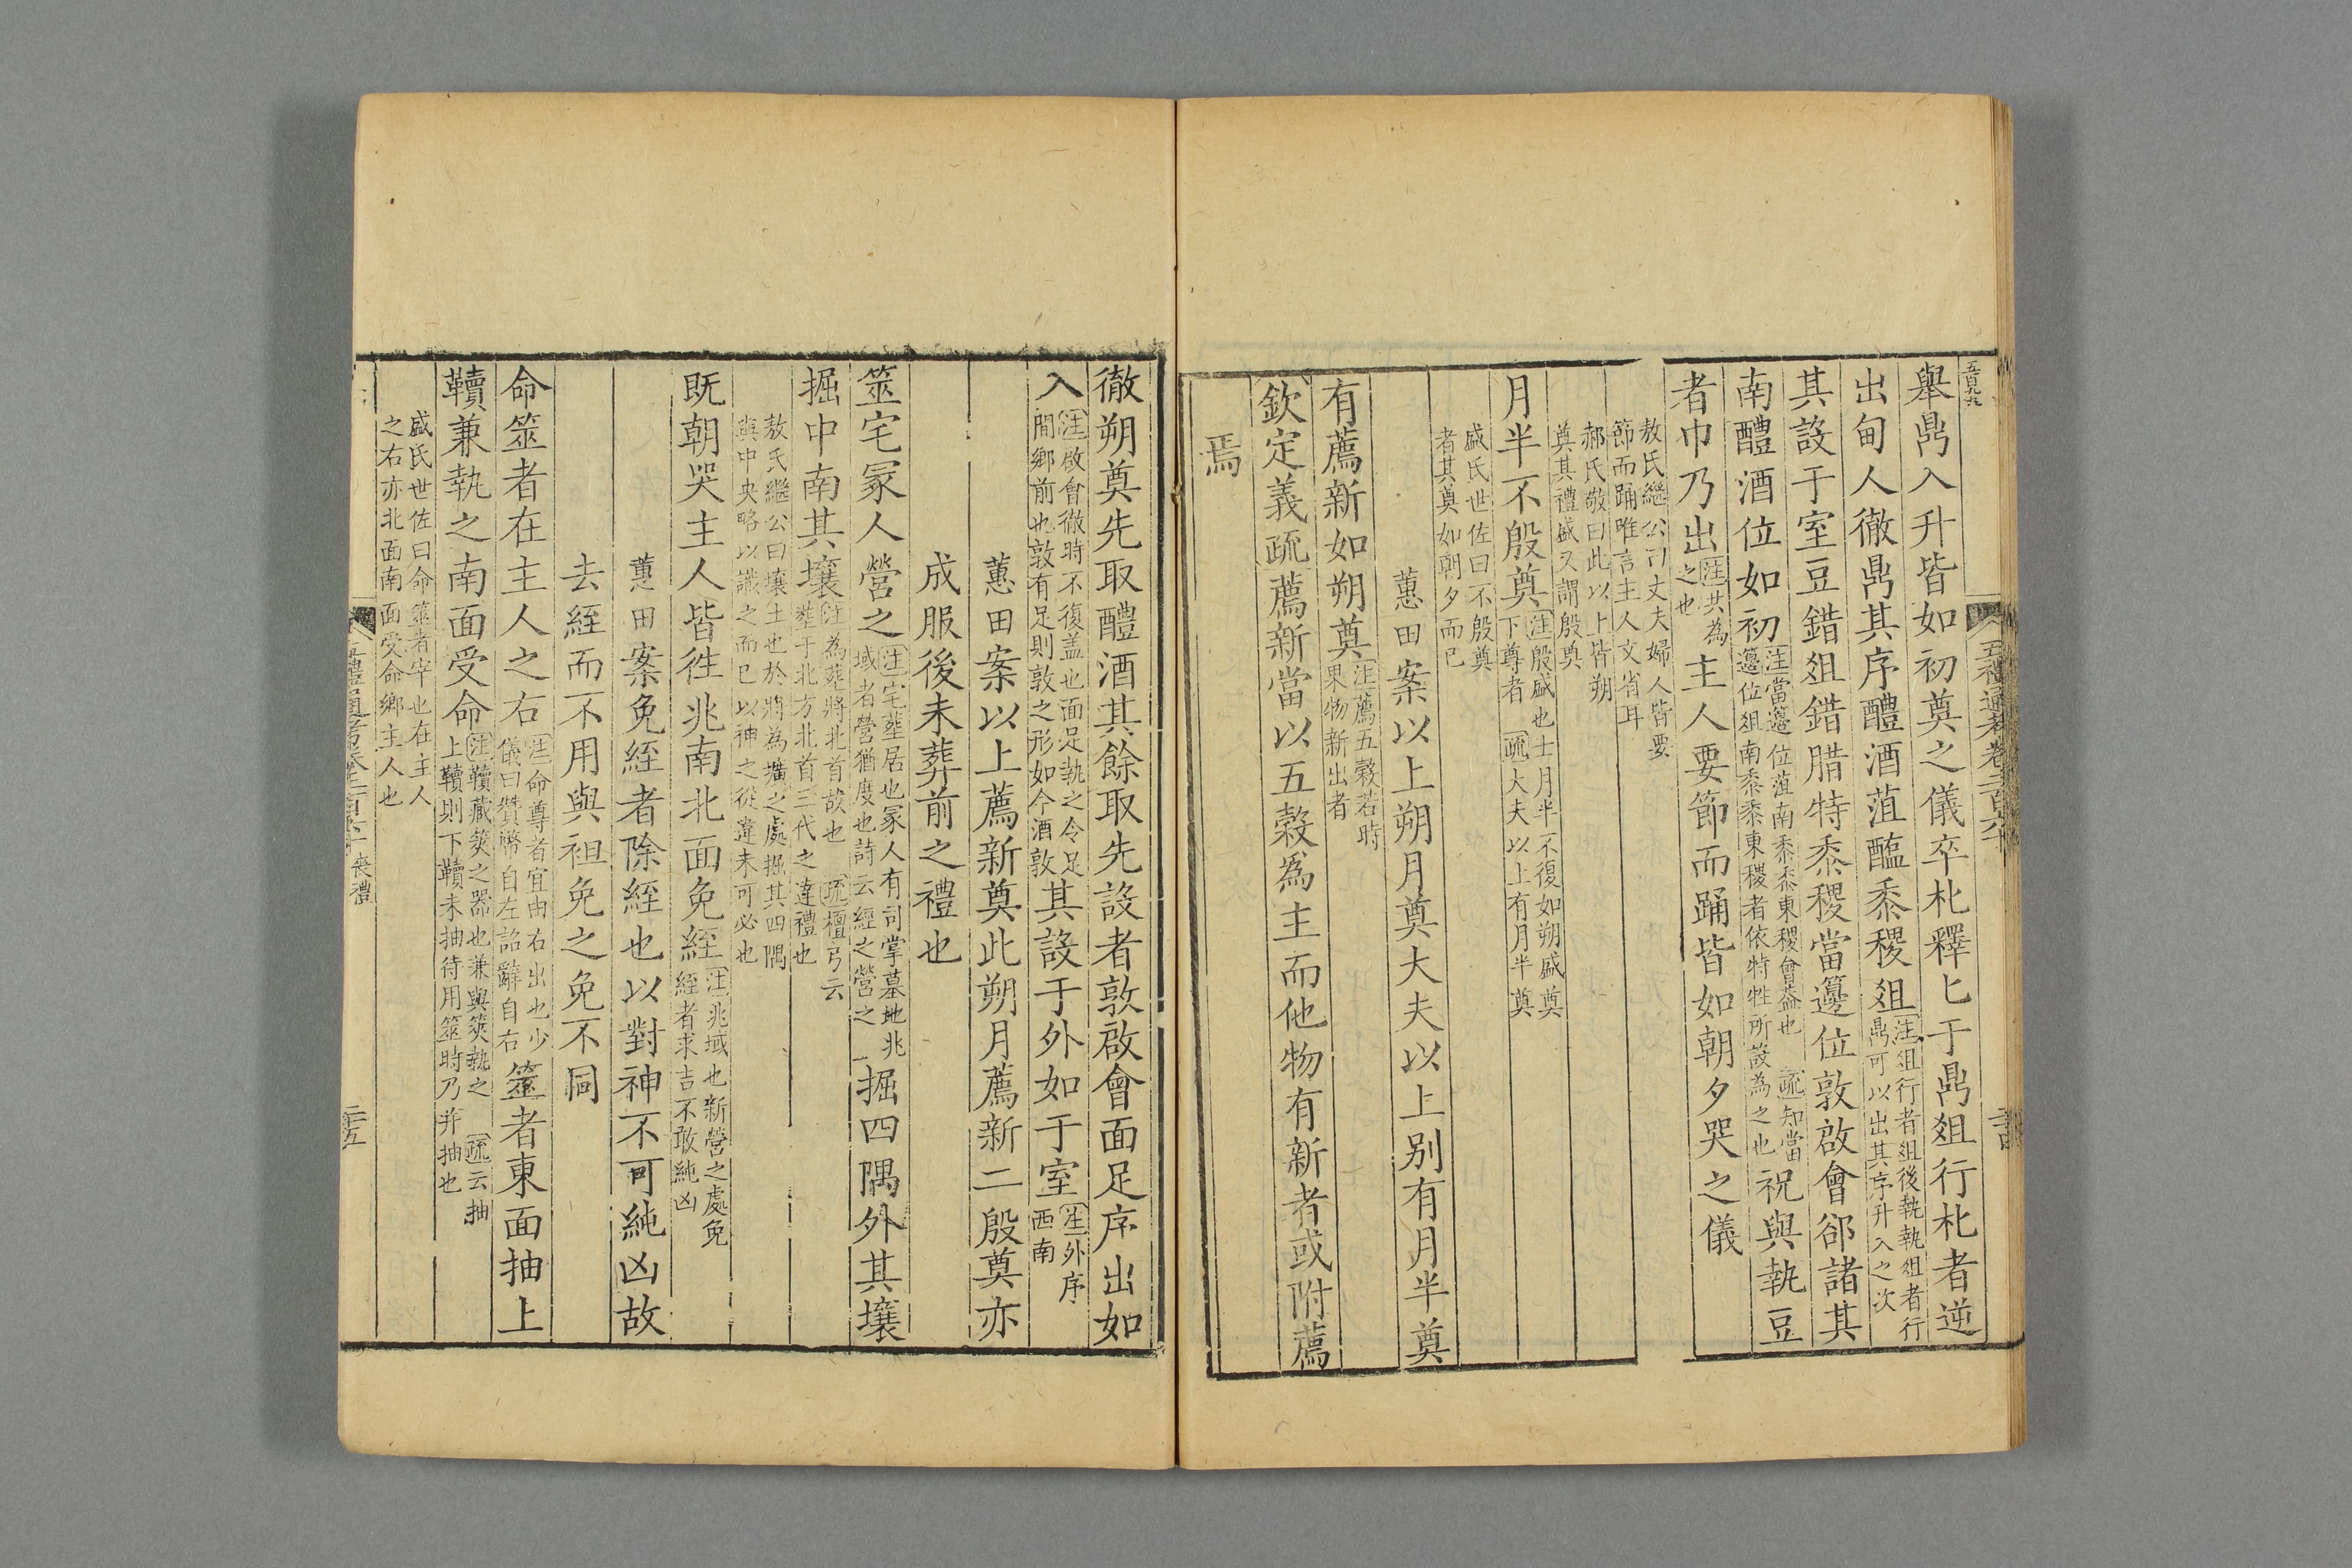 舉鼎入升皆如初奠之儀卒朼釋匕于鼎俎行朼者逆
出甸人徹鼎其序醴酒菹醢黍稷俎注俎行者俎後執執俎者行鼎可以出其序升入之次
其設于室豆錯俎錯腊特黍稷當籩位敦啟會郤諸其
南醴酒位如初注當籩位菹南黍黍東稷會葢也 疏知當籩位俎南黍黍東稷者依特牲所設為之也祝與執豆
者巾乃出注共為之也主人要節而踊皆如朝夕哭之儀
敖氏繼公曰丈夫婦人皆要
節而踊唯言主人文省耳
郝氏敬曰此以上皆朔
奠其禮盛又謂殷奠
月半不殷奠注殷盛也士月半不復如朔盛奠下尊者 疏大夫以上有月半奠
盛氏世佐曰不殷奠
者其奠如朝夕而已
蕙田案以上朔月奠大夫以上别有月半奠
有薦新如朔奠注薦五穀若時果物新出者
欽定義疏薦新當以五穀為主而他物有新者或附薦
焉
徹朔奠先取醴酒其餘取先設者敦啟會面足序出如
入注啟會徹時不復盖也面足執之令足間鄉前也敦有足則敦之形如今酒敦其設于外如于室注外序西南
蕙田案以上薦新奠此朔月薦新二殷奠亦
成服後未葬前之禮也
筮宅冢人營之注宅葬居也冢人有司掌墓地兆域者營猶度也詩云經之營之掘四隅外其壤
掘中南其壤注為葬將北首故也 疏檀弓云葬于北方北首三代之達禮也
敖氏繼公曰壤土也於將為壙之處掘其四隅
與中央略以識之而已以神之從違未可必也
既朝哭主人皆徃兆南北面免絰注兆域也新營之處免絰者求吉不敢純凶
蕙田案免絰者除絰也以對神不可純凶故
去絰而不用與袒免之免不同
命筮者在主人之右注命尊者宜由右出也少儀曰贊幣自左詔辭自右筮者東面抽上
韇兼執之南面受命注韇藏筴之器也兼與筴執之 疏云抽上韇則下韇未抽待用筮時乃并抽也
盛氏世佐曰命筮者宰也在主人
之右亦北面南面受命鄉主人也
五禮通考卷二百六十 喪禮
二十五